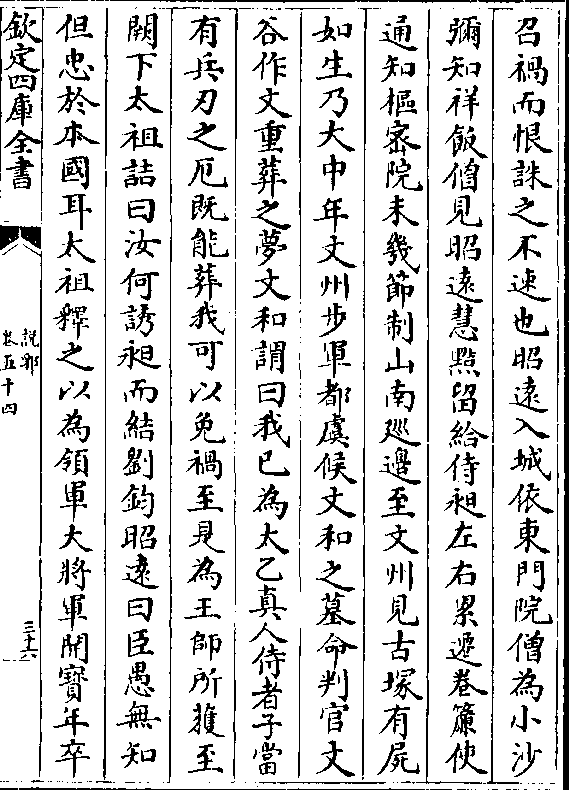 召禍而恨誅之不速也昭遠入城依東門院僧為小沙
彌知祥飯僧見昭遠慧黠留給侍昶左右累遷卷簾使
通知樞密院未幾節制山南廵邊至文州見古塚有屍
如生乃大中年文州步軍都虞候文和之墓命判官文
谷作文重葬之夢文和謂曰我已為太乙真人侍者子當
有兵刃之厄既能葬我可以免禍至是為王師所獲至
闕下太祖詰曰汝何誘昶而結劉鈞昭遠曰臣愚無知
但忠於本國耳太祖釋之以為領軍大將軍開寶年卒
欽定四庫全書
說郛
卷五十四
三十六